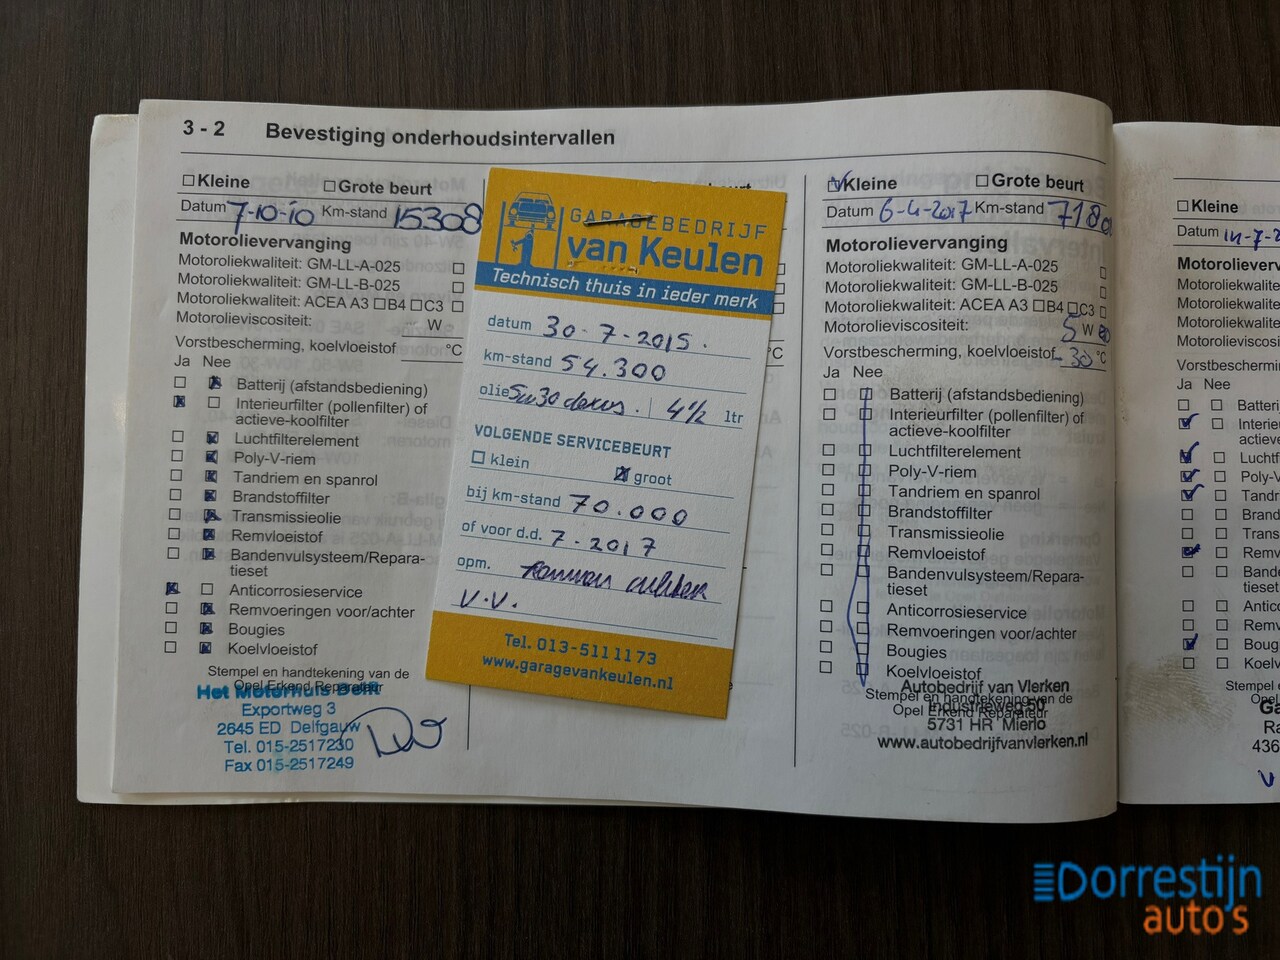 3 - 2 Bevestiging onderhoudsintervallen
Kleine Grote beurt
Datum 7-10-10 Km-stand 15308
Motorolievervanging
Motoroliekwaliteit: GM-LL-A-025
Motoroliekwaliteit: GM-LL-B-025
Motoroliekwaliteit: ACEA A3 B4 C3
Motorolieviscositeit: W
Vorstbescherming, koelvloeistof °C
Ja Nee
Batterij (afstandsbediening)
Interieurfilter (pollenfilter) of
actieve-koolfilter
Luchtfilterelement
Poly-V-riem
Tandriem en spanrol
Brandstoffilter
Transmissieolie
Remvloeistof
Bandenvulsysteem/Repara-
tieset
Anticorrosieservice
Remvoeringen voor/achter
Bougies
Koelvloeistof
Stempel en handtekening van de
Opel Erkend Reparateur
Het Motorhuis Delft
Exportweg 3
2645 ED Delfgauw
Tel. 015-2517230
Fax 015-2517249
beurt
GARAGEBEDRIJF
van Keulen
Technisch thuis in ieder merk
datum 30-7-2015.
km-stand 54.300
olie 5w30 dexos. 4½ ltr
VOLGENDE SERVICEBEURT
klein groot
bij km-stand 70.000
of voor d.d. 7-2017
opm.
v.v.
Tel. 013-5111173
www.garagevankeulen.nl
°C
Kleine Grote beurt
Datum 6-4-2017 Km-stand
Motorolievervanging
Motoroliekwaliteit: GM-LL-A-025
Motoroliekwaliteit: GM-LL-B-025
Motoroliekwaliteit: ACEA A3 B4 C3
Motorolieviscositeit: 5 W
Vorstbescherming, koelvloeistof -30 °C
Ja Nee
Batterij (afstandsbediening)
Interieurfilter (pollenfilter) of
actieve-koolfilter
Luchtfilterelement
Poly-V-riem
Tandriem en spanrol
Brandstoffilter
Transmissieolie
Remvloeistof
Bandenvulsysteem/Repara-
tieset
Anticorrosieservice
Remvoeringen voor/achter
Bougies
Koelvloeistof
Stempel en handtekening van de
Opel Erkend Reparateur
Autobedrijf van Vlerken
Industrieweg 50
5731 HR Mierlo
www.autobedrijfvanvlerken.nl
Kleine
Datum
Motorolieverv
Motoroliekwalite
Motoroliekwalite
Motoroliekwalite
Motorolieviscosi
Vorstbescherming
Ja Nee
Batteri
Interieu
actieve
Luchtf
Poly-V
Tandr
Brand
Trans
Remv
Bande
tieset
Antico
Remv
Boug
Koelv
Stempel e
Ga
Ra
436
Dorrestijn
auto's